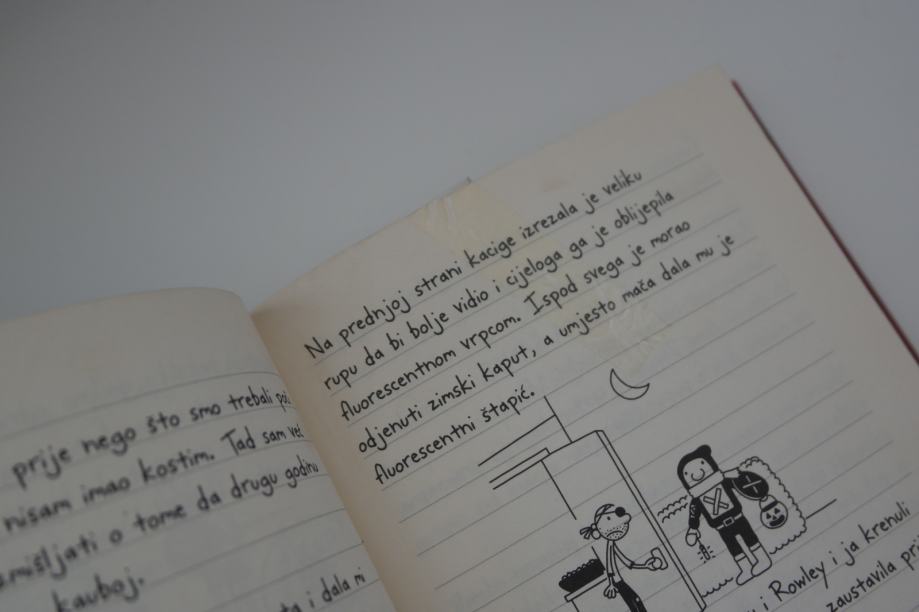 prije nego što smo trebali
nisam imao kostim. Tad sam već
o tome da drugu godinu
kauboj.
i dala mi
Na prednjoj strani kacige izrezala je veliku
rupu da bi bolje vidio i cijeloga ga je oblijepila
fluorescentnom vrpcom. Ispod svega je morao
odjenuti zimski kaput, a umjesto mača dala mu je
fluorescentni štapić.
i Rowley i ja krenuli
zaustavila